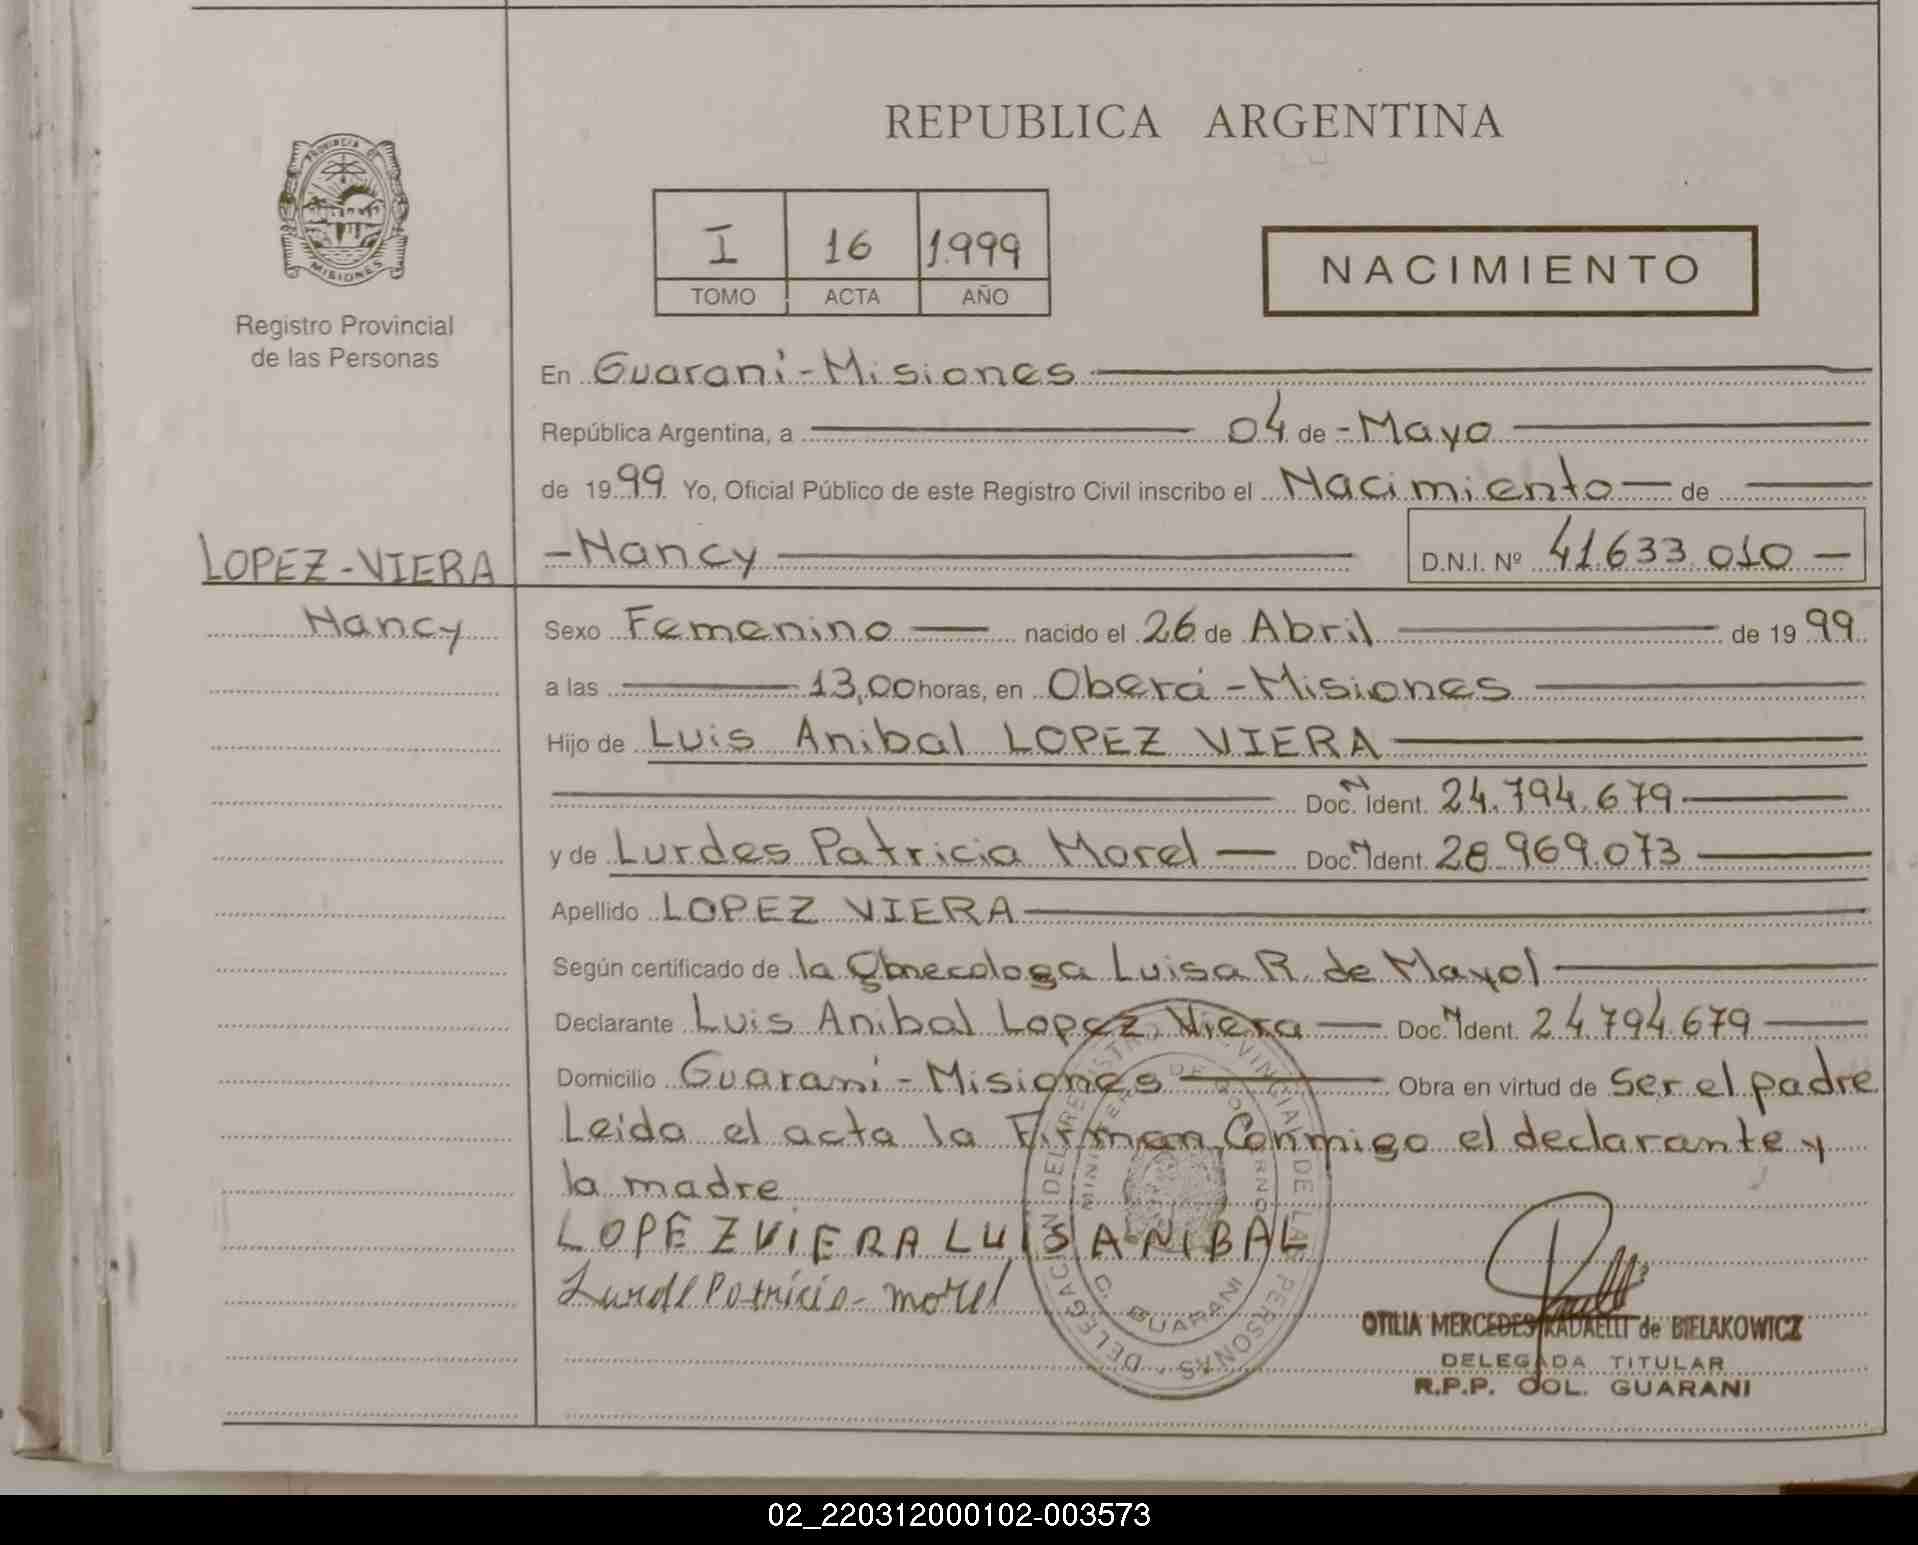 REPUBLICA ARGENTINA
PROVINCIA DE
MISIONES
Registro Provincial
de las Personas
I 16 1.999
TOMO ACTA AÑO
NACIMIENTO
En Guaraní - Misiones
República Argentina, a 04 de - Mayo
de 19 99 Yo, Oficial Público de este Registro Civil inscribo el Nacimiento de
LOPEZ-VIERA
- Nancy D.N.I. Nº 41.633.010
Nancy
Sexo Femenino nacido el 26 de Abril de 19 99
a las 13,00 horas, en Oberá - Misiones
Hijo de Luis Anibal LOPEZ VIERA
Doc. N Ident. 24.794.679
y de Lurdes Patricia Morel Doc. N Ident. 28.969.073
Apellido LOPEZ VIERA
Según certificado de la Luisa R. de Mayol
Declarante Luis Anibal Lopez Viera Doc. N Ident. 24.794.679
Domicilio Guaraní - Misiones Obra en virtud de ser el padre
Leida el acta la Firman Conmigo el declarante y
la madre
LOPEZ VIERA LUIS ANIBAL
Patricia morel
DELEGACION DEL REGISTRO PROVINCIAL DE LAS PERSONAS
MINISTERIO DE GOBIERNO
C. GUARANI
OTILIA MERCEDES RADAELLI de BIELAKOWICZ
DELEGADA TITULAR
R.P.P. COL. GUARANI
02_220312000102-003573